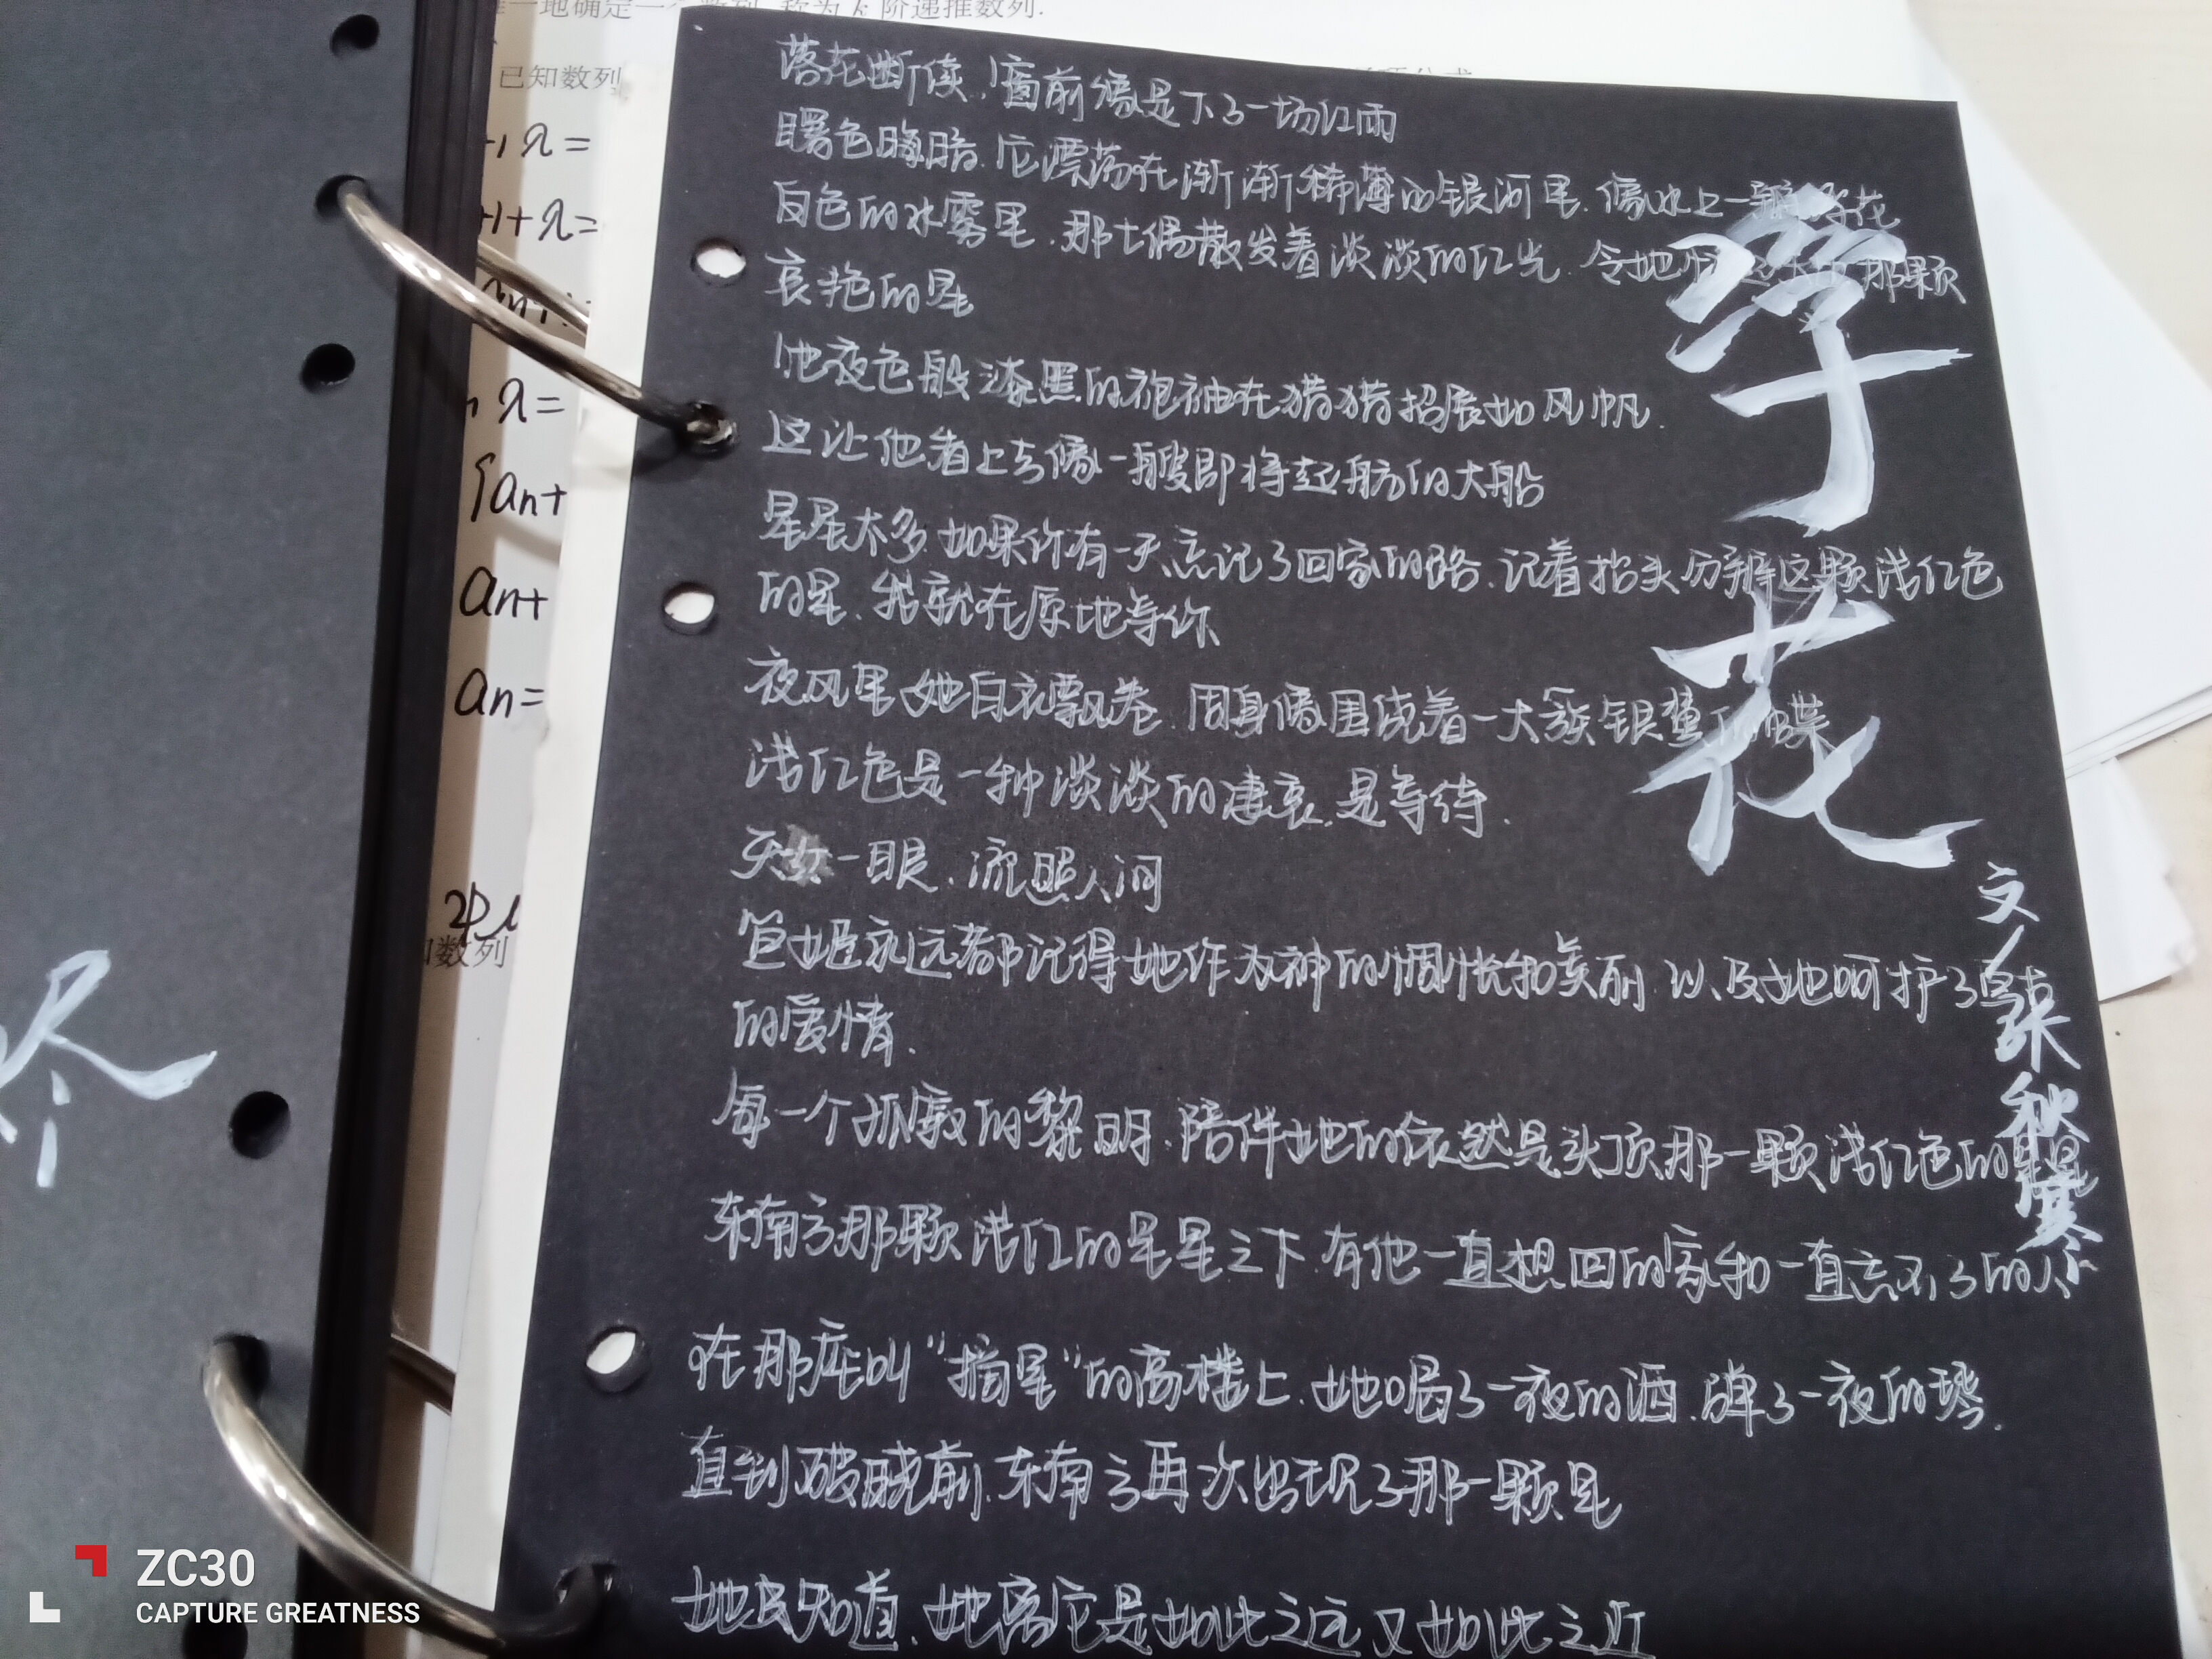 唯一地确定一个数列,称为k阶递推数列.
已知数列
+1λ=
+1+λ=
λ=
{an+
an+
an=
已知数列
落花断续,窗前像是下了一场红雨
曙色晦暗.它漂荡在渐渐稀薄的银河里.像水上一瓣浮花
白色的水雾里.那七偶散发着淡淡的红光.令她 那颗
哀艳的星
他夜色般漆黑的袍袖在猎猎招展如风帆.
这让他看上去像一艘即将起航的大船
星星太多.如果你有一天忘记了回家的路.记着抬头分辨这颗浅红色
的星.我就在原地等你
夜风里她白衣飘卷.周身像围绕着一大簇银蓝 蝶
浅红色是一种淡淡的凄哀.是等待.
天女一眼.流照人间
笆姬永远都记得她作为神的惆怅和美丽.以及她呵护了
的爱情.
每一个孤寂的黎明.陪伴她的依然是头顶那一颗浅红色的星
东南方那颗浅红的星星之下.有他一直想回的家和一直忘不了的人
在那座叫"摘星"的高楼上.她喝了一夜的酒.弹了一夜的琴.
直到破晓前.东南方再次出现了那一颗星
她 知道.她离它是如此之远又如此之近
浮花
文/张秋寒
ZC30
CAPTURE GREATNESS